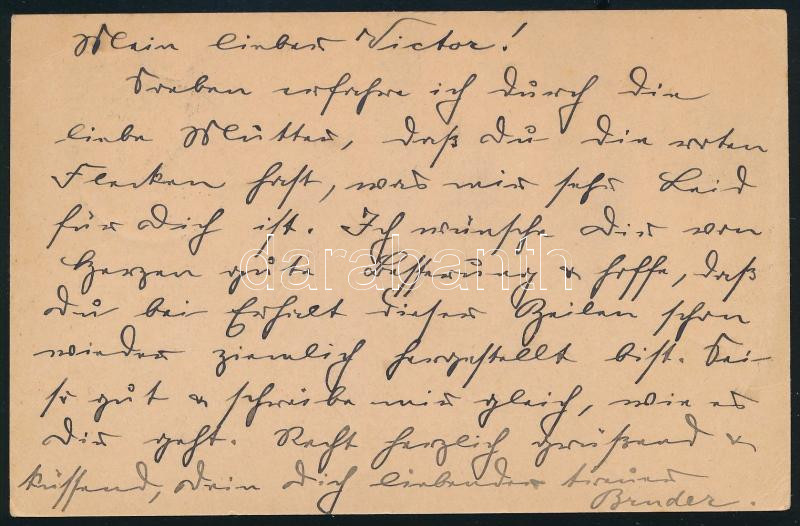 Mein lieber Victor!
Soeben erfahre ich durch die
liebe Mutter, daß Du die roten
Flecken hast, was mir sehr Leid
für Dich ist. Ich wünsche Dir von
Herzen gute Besserung & hoffe, daß
darabanth
Du bei Erhalt dieser Zeilen schon
wieder ziemlich hergestellt bist. Sei
so gut & schreibe mir gleich, wie es
Dir geht. Recht herzlich grüßend &
küssend, Dein Dich liebender treuer
Bruder.